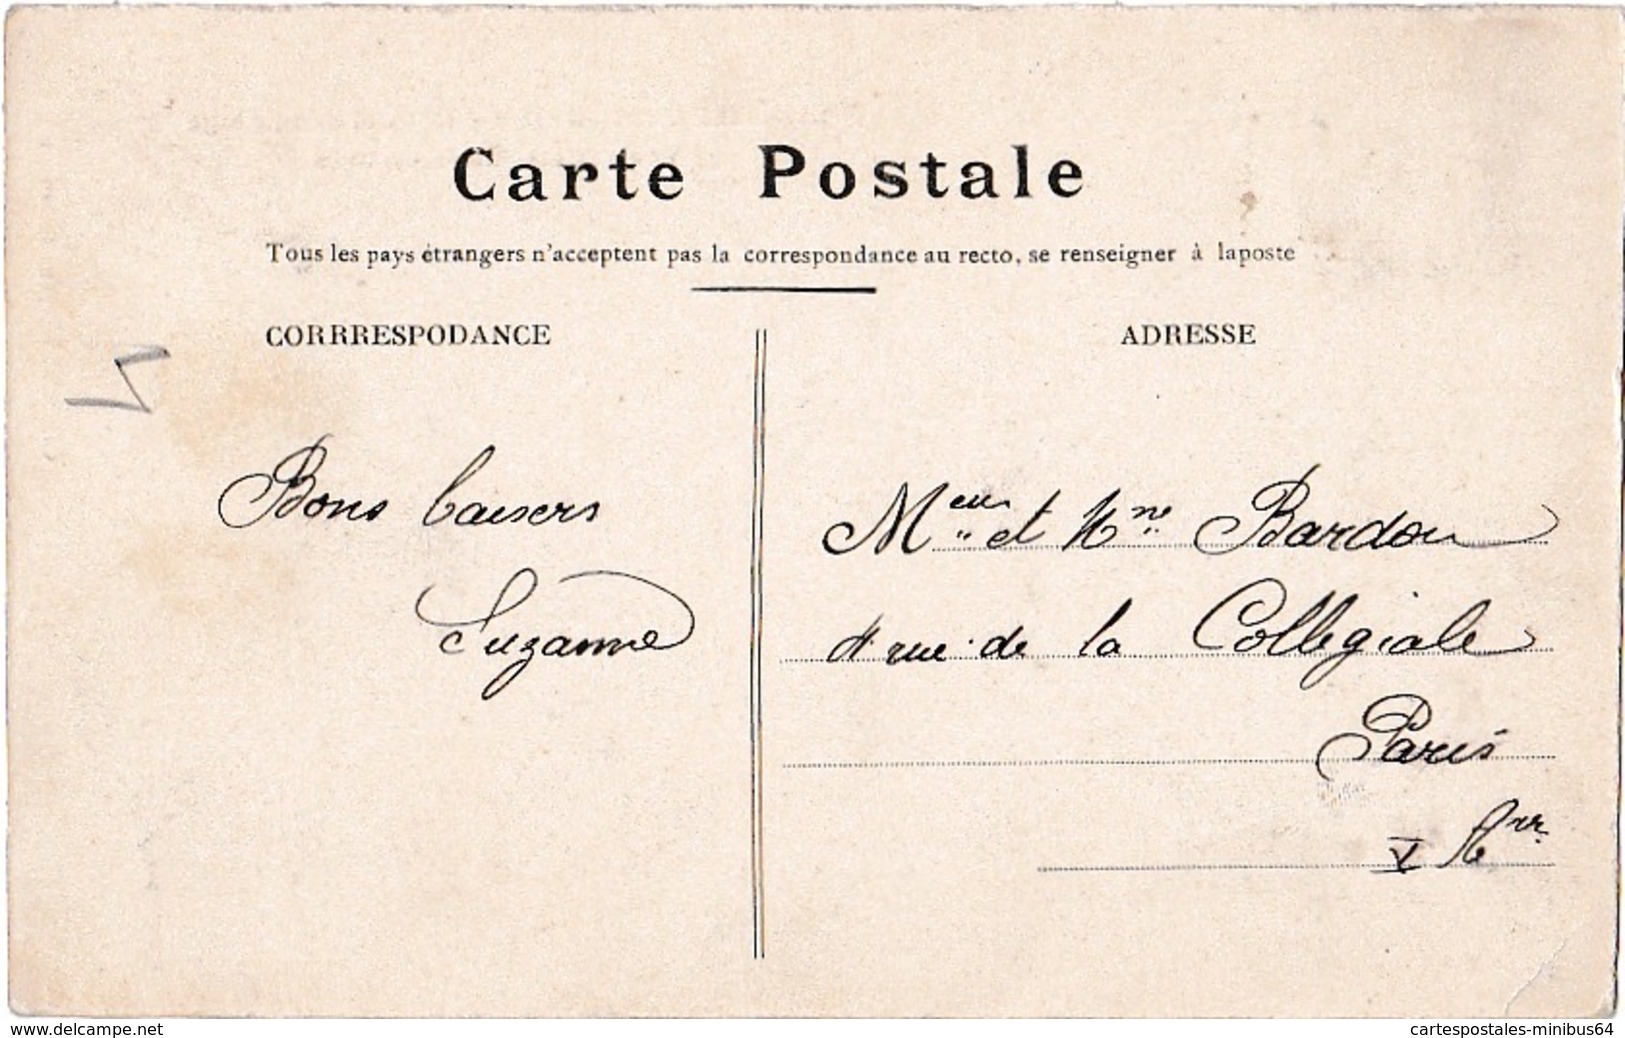 Carte Postale
Tous les pays étrangers n'acceptent pas la correspondance au recto, se renseigner à laposte
CORRRESPODANCE
Bons baisers
Suzanne
ADRESSE
et Bardou
rue de la Collegiale
Paris
V Arr.
www.delcampe.net
cartespostales-minibus64